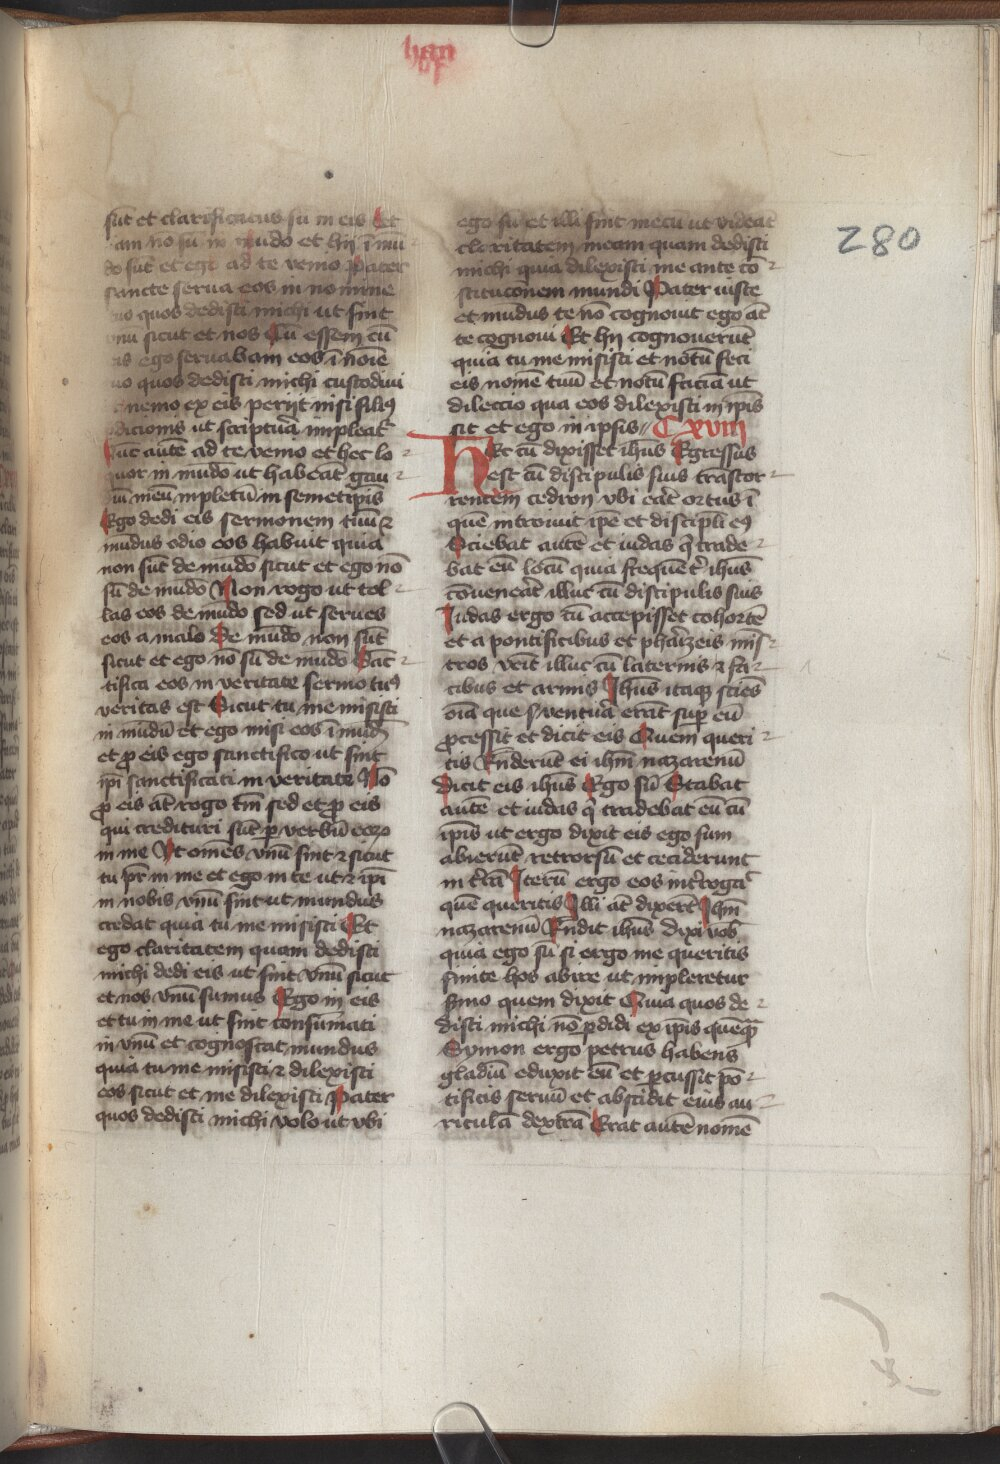 280
sūt et clarificatus sū in eis Et
am nō sū in mūdo et hij ī mū
do sūt et ego ad te venio Pater
sancte serua eos in nomine
tuo quos dedisti michi ut sint
vnū sicut et nos Cū essem cū
eis ego seruabam eos ī noīe
tuo quos dedisti michi custodiui
nemo ex eis perijt nisi filiꝰ
pdicionis ut scriptura impleat᷑
Nūc autē ad te venio et hec lo
quor in mūdo ut habeāt gau
diū meū īpletū in semetipīs
Ego dedi eis sermonem tuū ⁊
mūdus odio eos habuit quia
non sūt de mūdo sicut et ego nō
sū de mūdo Non rogo ut tol
las eos de mūdo sed ut serues
eos a malo De mūdo non sūt
sicut et ego nō sū de mūdo Sāc
tifica eos in veritate sermo tuꝰ
veritas est Sicut tu me misisti
in mūdū et ego misi eos ī mūdū
et ꝓ eis ego sanctifico ut sint
ipī sanctificati in veritate Nō
ꝓ eis āt rogo tm̄ sed et ꝓ eis
qui credituri sūt ꝑ verbū eoꝝ
in me Vt omēs vnū sint ⁊ sicut
tu pr̄ in me et ego in te ut ⁊ ipī
in nobis vnū sint ut mundus
credat quia tu me misisti Et
ego claritatem quam dedisti
michi dedi eis ut sint vnū sicut
et nos vnū sumus Ego in eis
et tu in me ut sint consūmati
in vnū et cognoscat mundus
quia tu me misisti ⁊ dilexisti
eos sicut et me dilexisti Pater
quos dedisti michi volo ut vbi
ego sū et illi sint mecū ut videāt
claritatem meam quam dedisti
michi quia dilexisti me ante cō
stituconem mundi Pater iuste
et mūdus te nō cognouit ego āt
te cognoui Et hij cognouerūt
quia tu me misisti et notū feci
eis nomē tuū et notū faciā ut
dileccio qua eos dilexisti in ipīs
sit et ego in ipsis Cxviij
HEc cū dixisset ihūs Egressus
est cū discipulis suis trāstor
rentem cedron vbi erāt ortus ī
quē introiuit ipē et discipli eꝰ
Sciebat autē et iudas q̄ trade
bat eū locū quia frequēt᷑ ihūs
cōueneāt illuc cū discipulis suis
Iudas ergo cū accepisset cohortē
et a pontificibus et pharizeis mis
tros vēit illuc cū laternis ⁊ fa
cibus et armis Ihūs itaqꝫ sciēs
oīa que vētura erāt sup̄ eū
ꝓcessit et dicit eis Quem queri
tis Rn̄derūt ei ihm̄ nazarenū
Dicit eis ihūs Ego sū Stabat
autē et iudas q̄ tradebat eū cū
ipīs ut ergo dixit eis ego sum
abierūt retrorsū et ceciderunt
in t̄rā Iterū ergo eos int̄rogāt
quē queritis Illi āt dixerūt Ihm̄
nazarenū Rn̄dit ihūs dixi vob̄
quia ego sū si ergo me queritis
sinite hos abire ut impleretur
s̄mo quem dixit Quia quos de
disti michi nō ꝑdidi ex ipīs quēquā
Symon ergo petrus habens
gladiū eduxit eū et ꝑcussit pō
tificis seruū et abscidit eius au
riculā dextrā Erat autē nomē